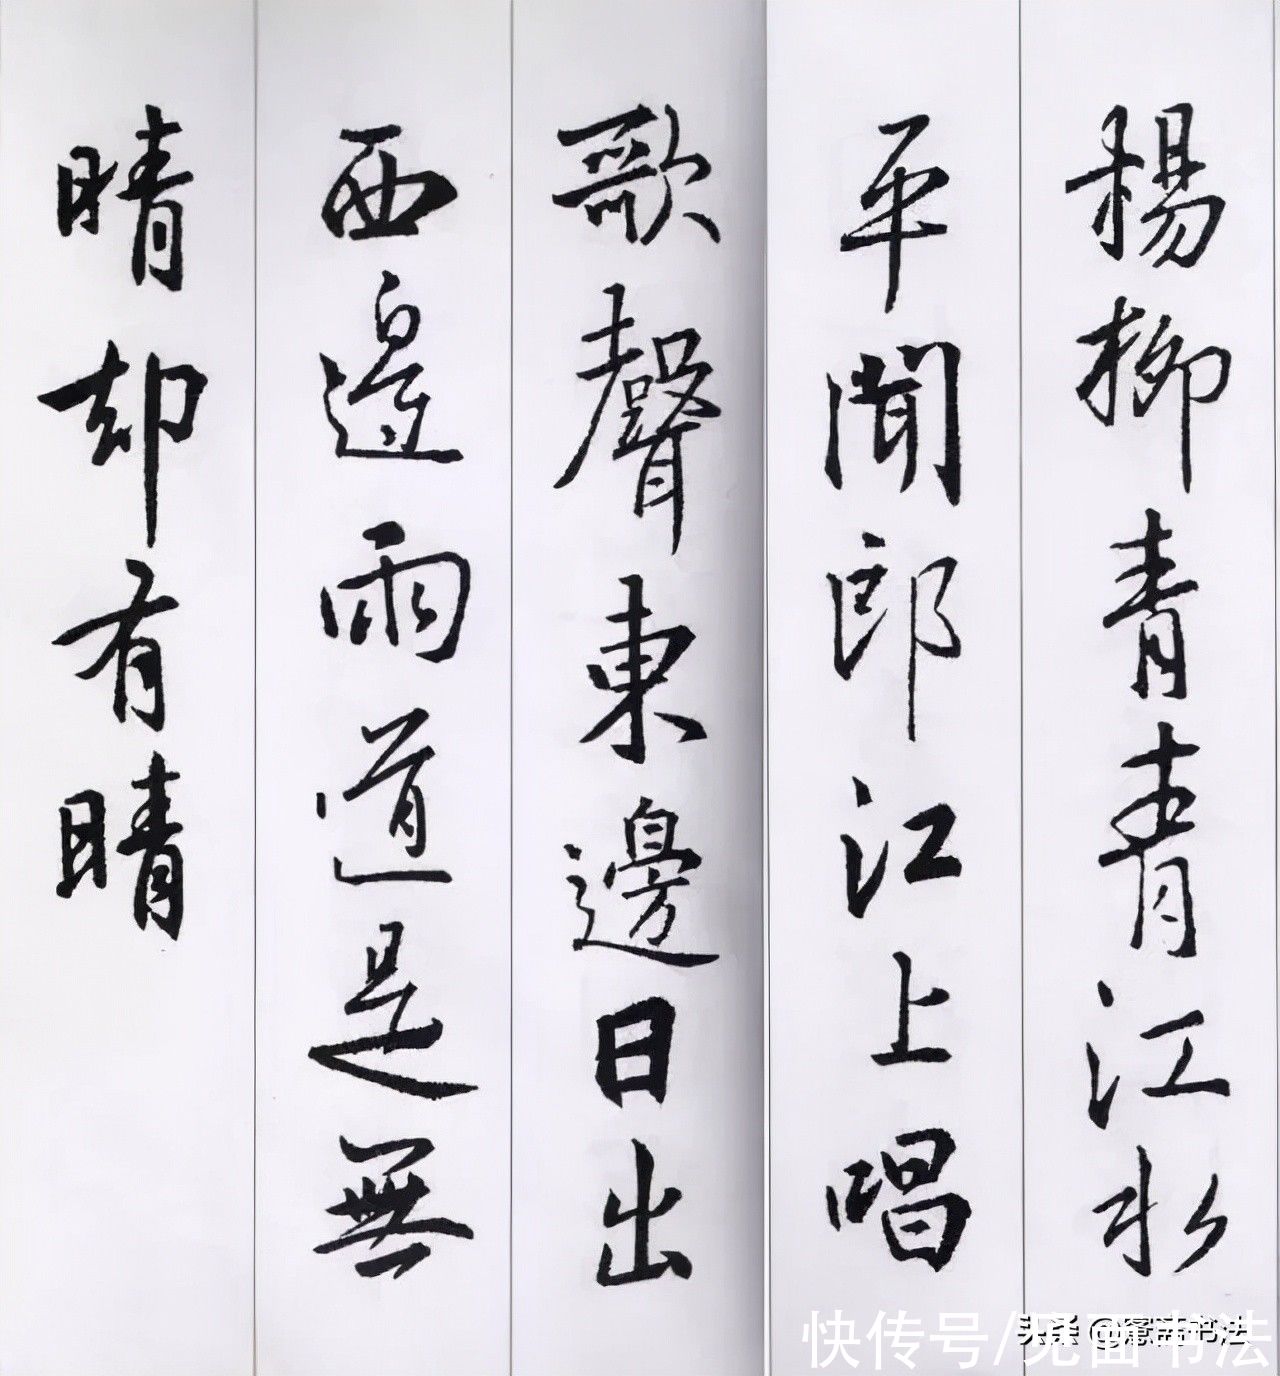 楊柳青青江水
平聞郎江上唱
歌聲東邊日出
西邊雨道是無
晴却有晴
快传号/见面书法